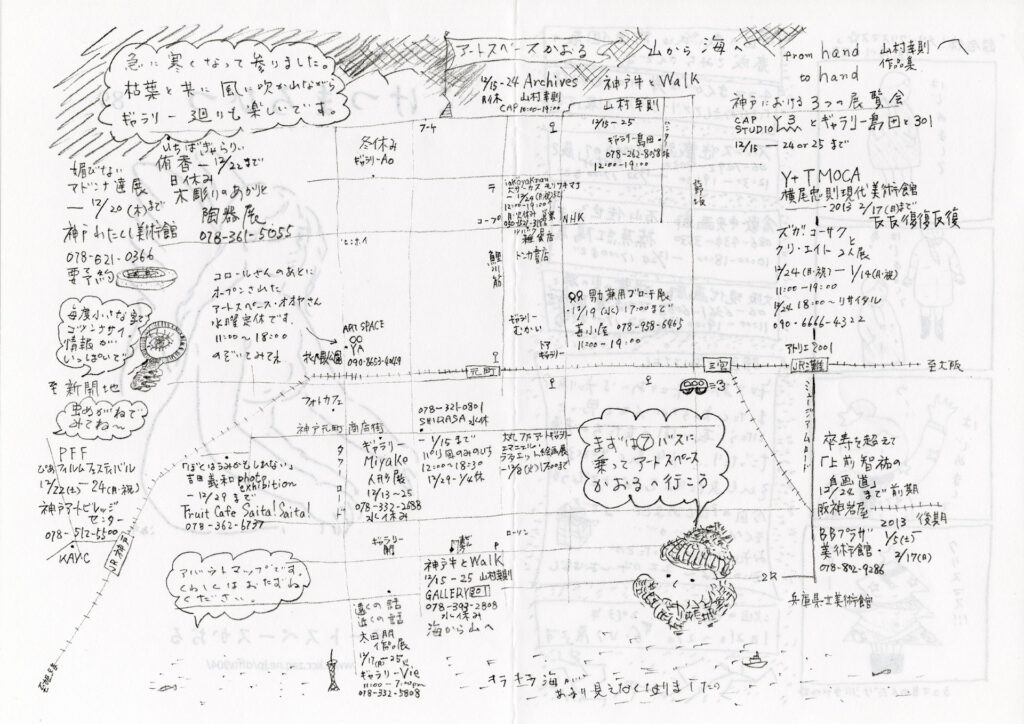 急に寒くなって参りました。
枯葉と共に風に吹かれながら
ギャラリー 3回りも楽しいです。
アートスペースかおる
山から海へ
from hand
to hand
山村幸則
作品集
12/15-24 Archives
月休 山村幸則
CAP 10:00-19:00
神戸牛とWalk
山村幸則
12/15-25
ギャラリー島田
078-262-8058
12:00-19:00
神戸における3つの展覧会
CAP
STUDIO Y3とギャラリー島田と301
12/15-24 or 25まで
Y+TMOCA
横尾忠則現代美術館
-2013 2/17(日)まで
反反復復反復
ズガコーサクと
クリ・エイト 2人展
12/24(月・祝)-1/14(月・祝)
11:00-19:00
12/24 18:00~リサイタル
090-6666-4322
アトリエ2001
いちばぎゃらりい
侑香-12/22まで
日休み
木彫りのあかりと
陶器展
078-361-5055
媚びない
マドンナ達展
-12/20(木)まで
神戸わたくし美術館
078-621-0366
要予約
冬休み
ギャラリーAO
コープ
NHK
雑貨店
トンカ書店
鯉川筋
ギャラリー
むかい
男女兼用ブローチ展
-12/19(水)17:00まで
苺小屋 078-958-6465
11:00-19:00
トア
ギャラリー
コロールさんのあとに
オープンされた
アートスペース・オオヤさん
水曜定休です。
11:00-18:00
のぞいてみてネ
ART SPACE
OYA
毎度小さな字で
ゴツンナサイ
情報が
いっぱいで
虫めがねで
みてね~
至新開地
元町
三宮
JR灘
至大阪
フォトカフェ
神戸元町 商店街
タワーロード
ミュージアムロード
078-321-0801
SHIMASA 水休
-1/15まで
12:00-18:30
12/29-1/4休
大丸
ラファエット絵画展
まずは⑦バスに
乗ってアートスペース
かおるへ行こう
卒寿を超えて
「上前智祐の
自画道」
12/24まで前期
阪神岩屋
2013 後期
1/5(土)
-3/17(日)
BBプラザ
美術館
078-802-9286
兵庫県立美術館
PFF
ぴあフィルムフェスティバル
12/22(土)-24(月・祝)
神戸アートビレッジ
センター
078-512-5500
KAVC
JR神戸
「ぼとぼるみかもしれない」
吉田義和photo
exhibition
-12/29まで
Fruit Cafe Saita! Saita!
078-362-6737
ギャラリー
Miyako
人形展
12/13-25
078-332-2688
水休み
ローソン
神戸牛とWalk
12/15-25 山村幸則
GALLERY301
078-393-2808
水休み
海から山へ
アバウトマップです。
くわしくはおたずね
ください。
遠くの話
近くの話
太田朋
作品展
ギャラリーVie
11:00-7:00PM
078-332-5808
キラキラ海が
あまり見えなくなりましたの